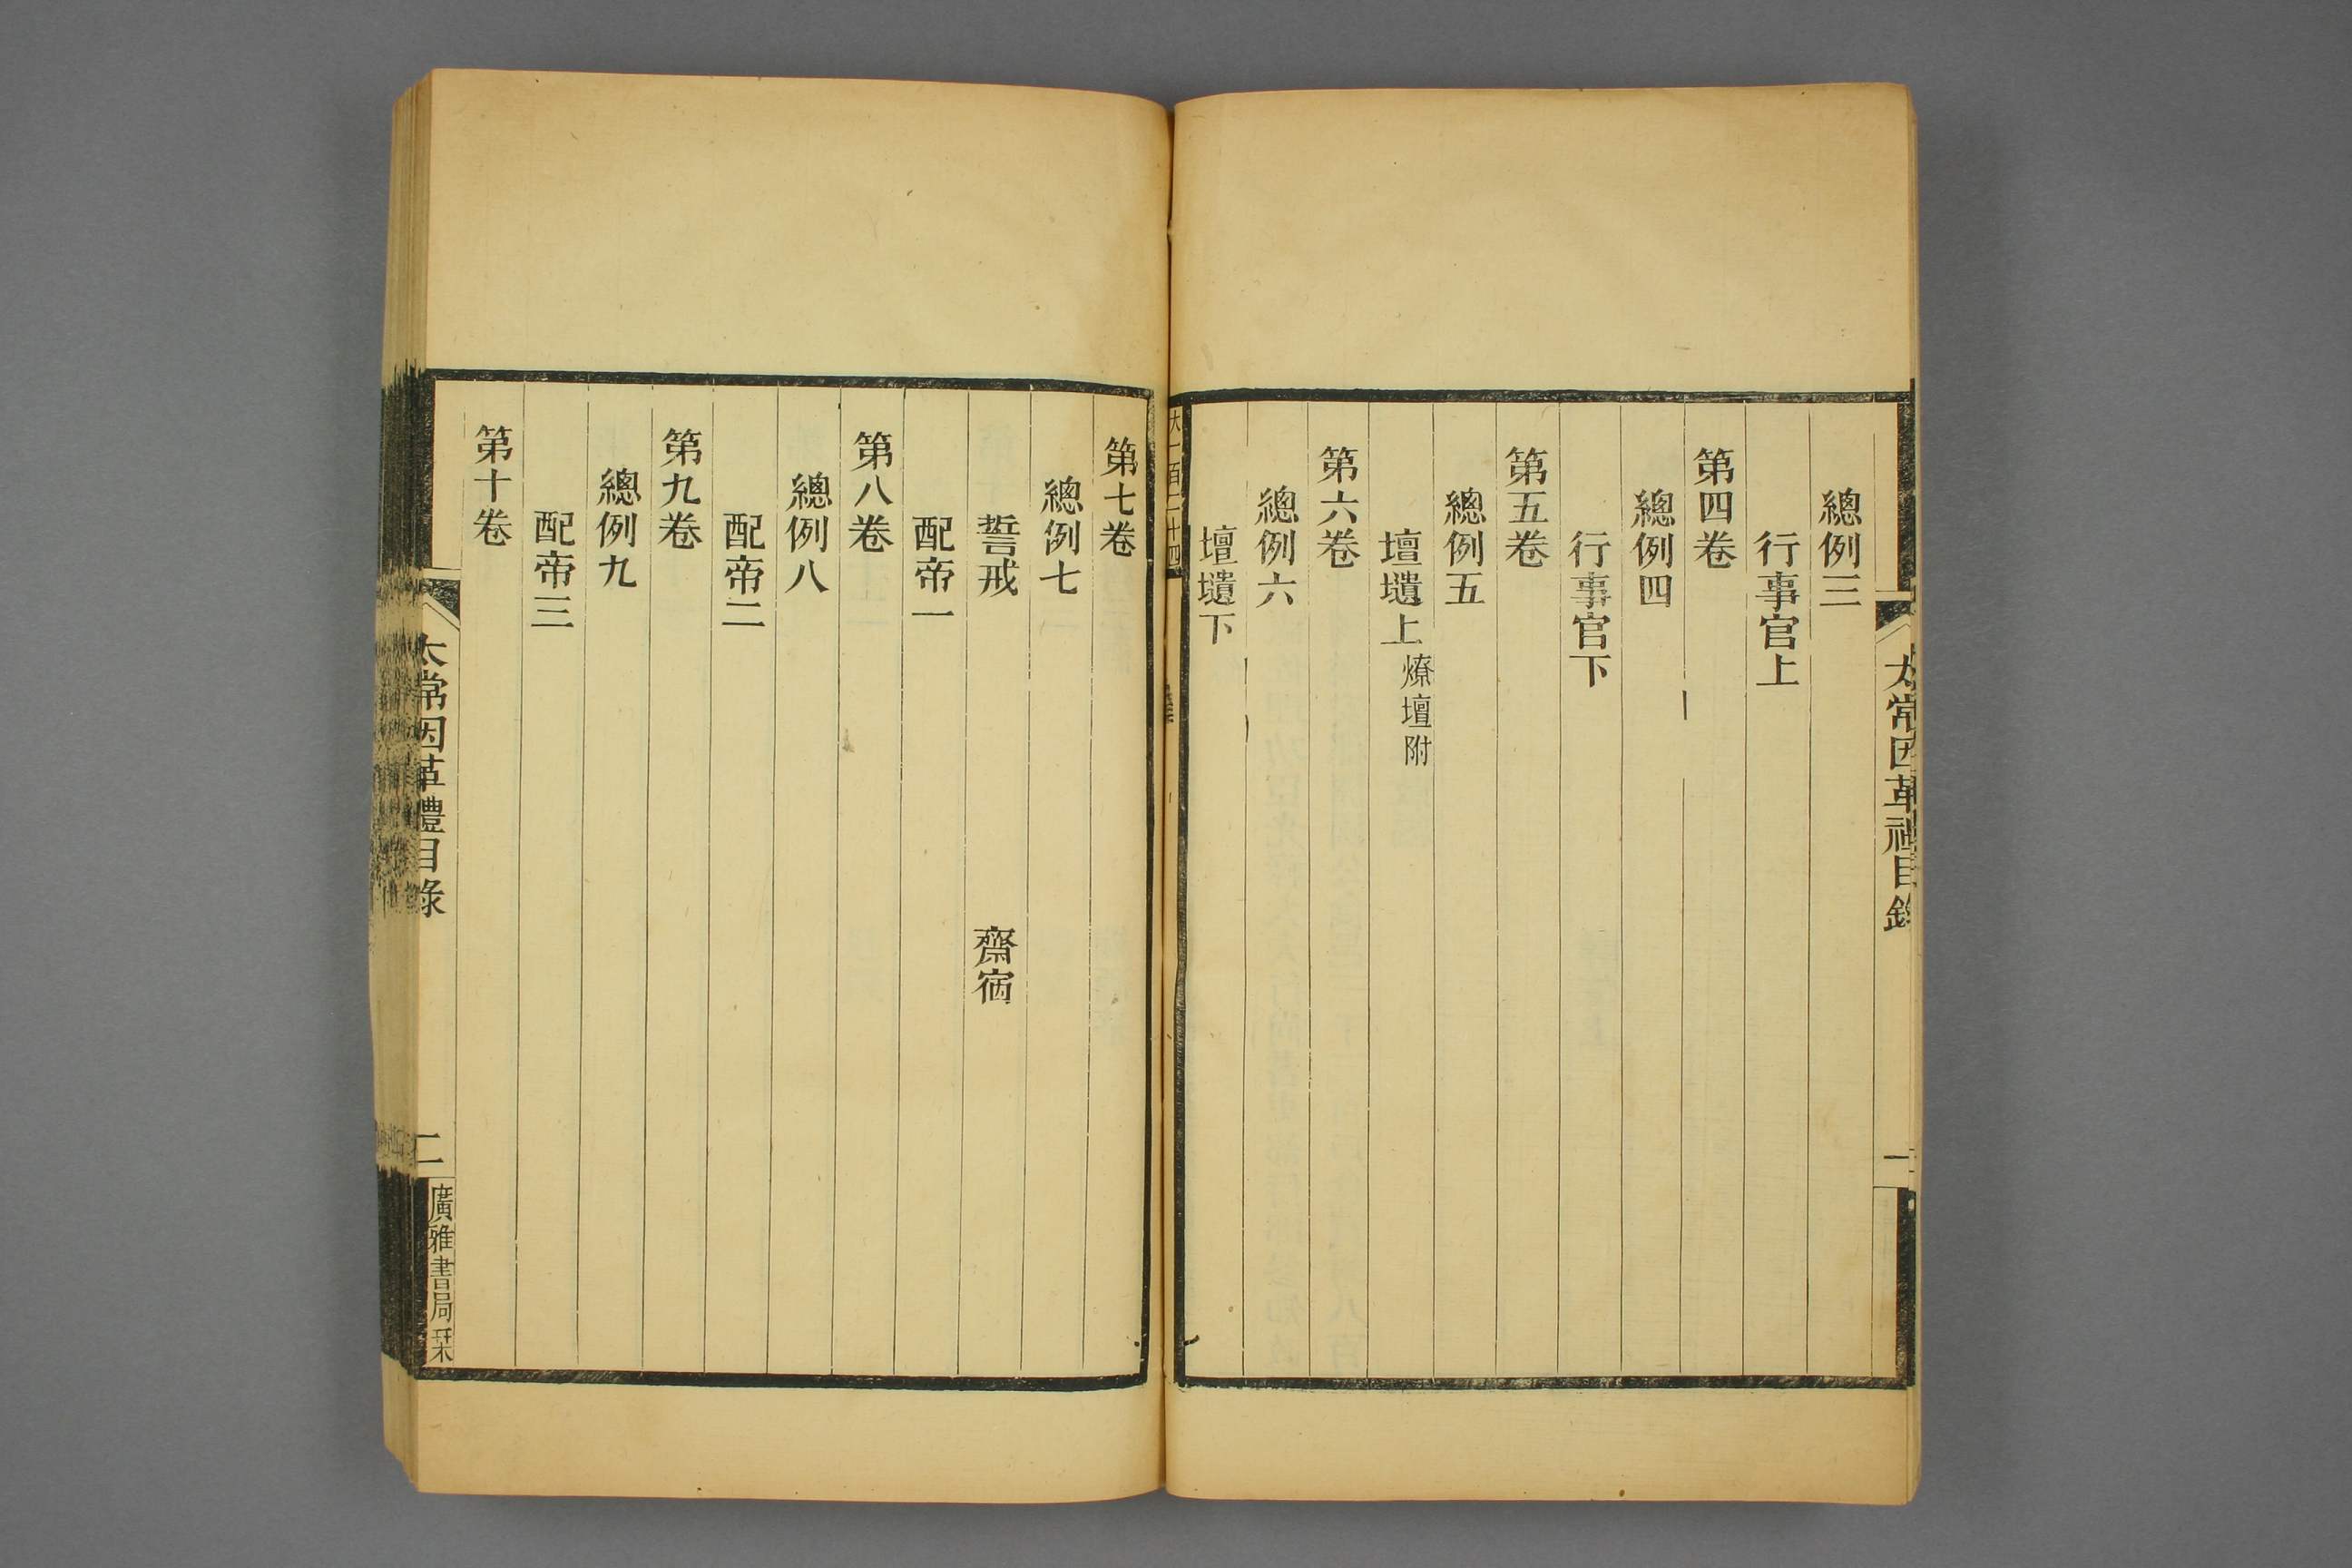 太常因革禮目錄
一
總例三
行事官上
第四卷
總例四
行事官下
第五卷
總例五
壇壝上 燎壇附
第六卷
總例六
壇壝下
大一百二十四
第七卷
總例七
誓戒 齋宿
配帝一
第八卷
總例八
配帝二
第九卷
總例九
配帝三
第十卷
太常因革禮目錄
二
廣雅書局栞